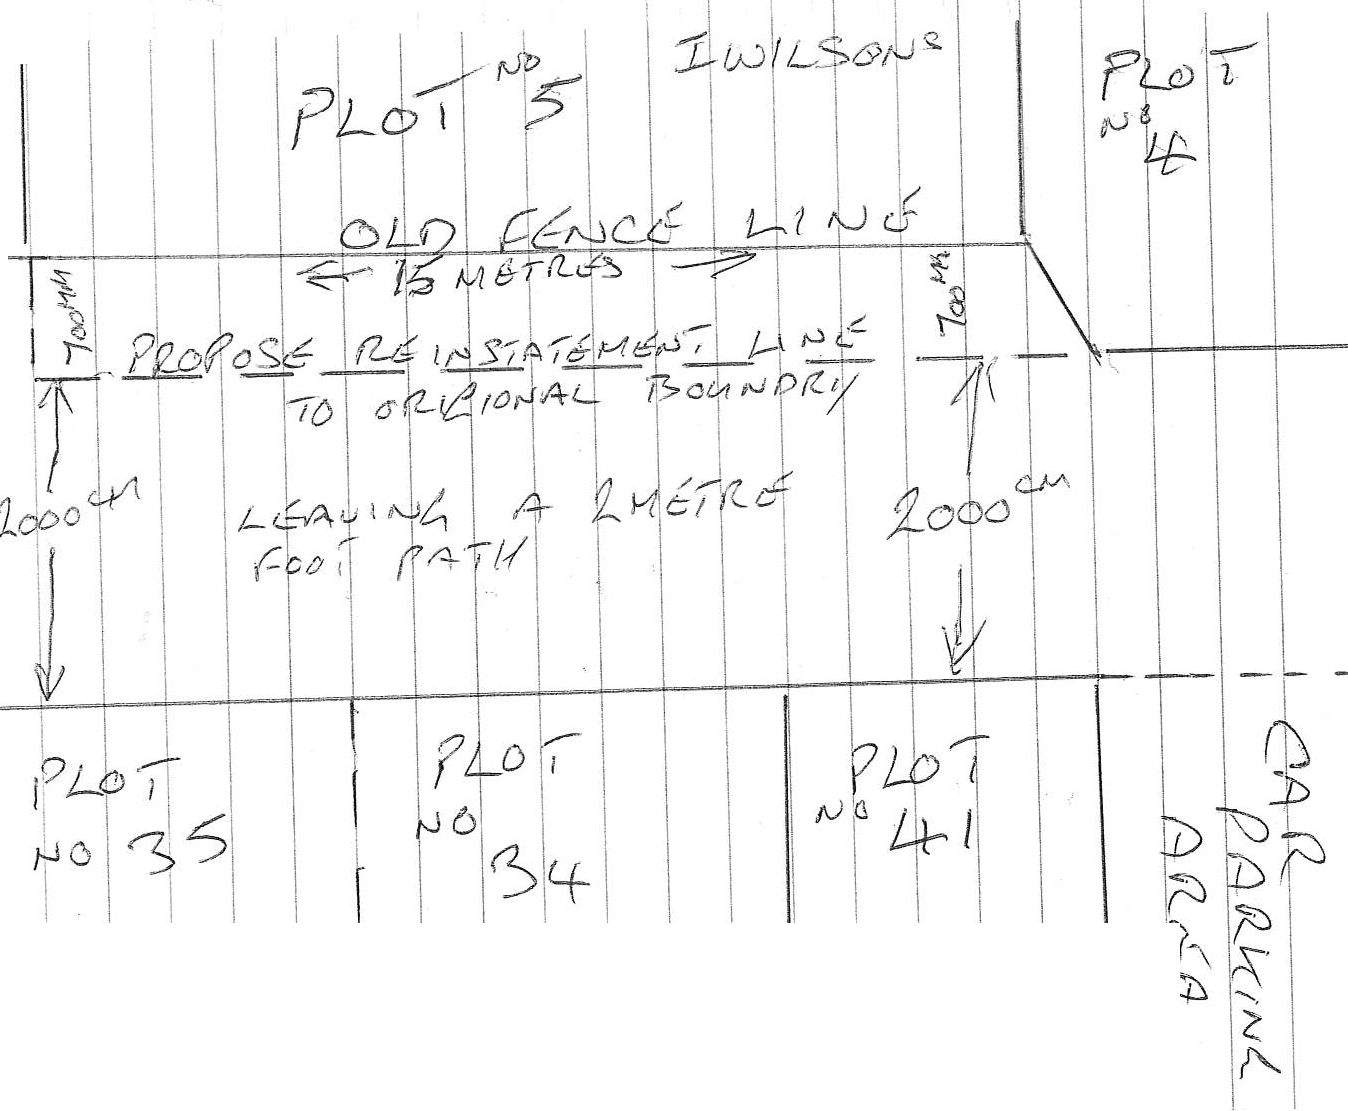 I WILSONS
PLOT NO 5
PLOT
NO 4
OLD FENCE LINE
15 METRES
700MM
700MM
PROPOSE REINSTATEMENT LINE
TO ORIGIONAL BOUNDRY
2000CM
LEAVING A 2 METRE
FOOT PATH
2000CM
PLOT
NO 35
PLOT
NO
34
PLOT
NO 41
CAR
PARKING
AREA